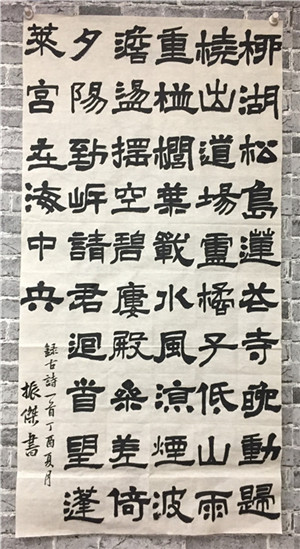 柳湖松島蓮花寺晚動歸
橈出道場盧橘子低山雨
重栟櫚葉戰水風涼煙波
澹盪搖空碧樓殿參差倚
夕陽到岸請君迴首望蓬
萊宮在海中央
錄古詩一首丁酉夏月
振傑書